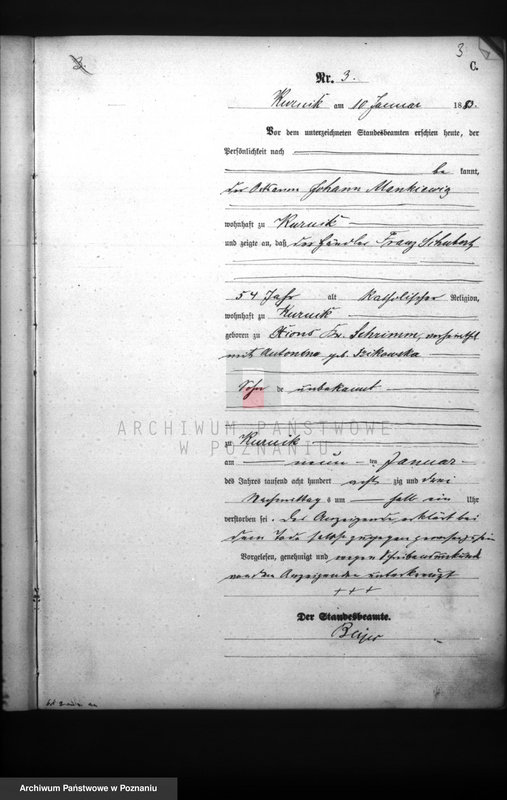 3.
3
C.
Nr. 3.
Kurnik am 10 Januar 1883.
Vor dem unterzeichneten Standesbeamten erschien heute, der
Persönlichkeit nach
be kannt,
der Johann Mankiewiz
wohnhaft zu Kurnik
und zeigte an, daß der Händler Franz Schubert
54 Jahr alt katholischer Religion,
wohnhaft zu Kurnik
geboren zu Xions Kr. Schrimm, verheirathet
mit Antonina geb.
Sohn de unbekannt
ARCHIWUM PAŃSTWOWE
W POZNANIU
zu Kurnik
am neun ten Januar
des Jahres tausend acht hundert acht zig und drei
Nachmittag s um halb ein Uhr
verstorben sei. Der Anzeigende erklärt bei
dem Tode selbst zugegen gewesen zu sein
Vorgelesen, genehmigt und wegen Schreibensunkunde
von dem Anzeigenden unterkreuzt
+ + +
Der Standesbeamte.
Beyer
Archiwum Państwowe w Poznaniu